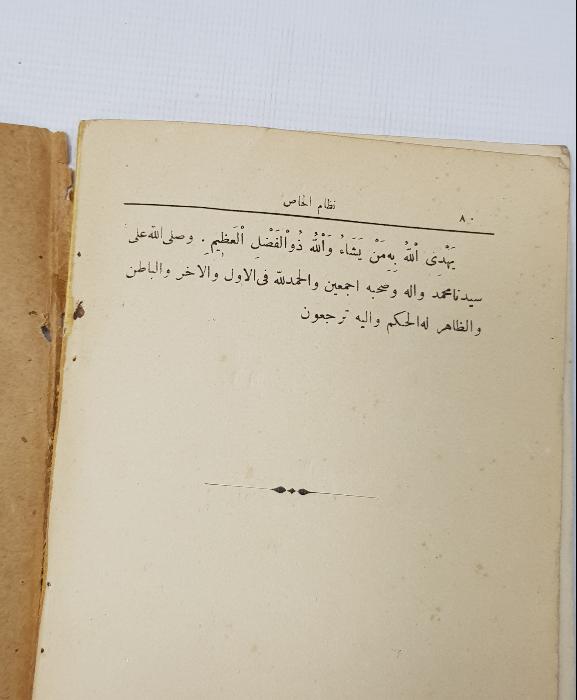 نظام الخاص
٨٠
يَهْدِى اللهُ بِهِ مَنْ يَشَاءُ وَاللهُ ذُوالْفَضْلِ الْعَظِيمِ . وصلى الله على
سيدنا محمد واله وصحبه اجمعين والحمدلله فى الاول والاخر والباطن
والظاهر له الحكم واليه ترجعون